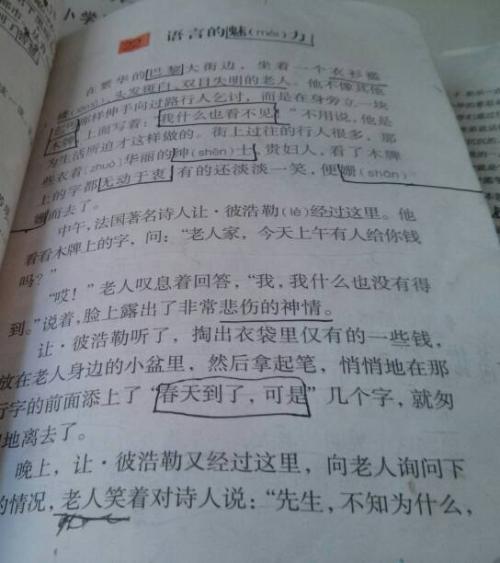 小学
语言的魅(mèi)力
在繁华的巴黎大街边，坐着一个衣衫褴
褛、头发斑白、双目失明的老人。他不像其他
那样伸手向过路行人乞讨，而是在身旁立一块
木牌，上面写着：“我什么也看不见！”不用说，他是
为生活所迫才这样做的。街上过往的行人很多，那
些衣着(zhuó)华丽的绅(shēn)士、贵妇人，看了木牌
上的字都无动于衷，有的还淡淡一笑，便姗(shān)
姗而去了。
中午，法国著名诗人让·彼浩勒(lè)经过这里。他
看看木牌上的字，问：“老人家，今天上午有人给你钱
吗？”
“哎！”老人叹息着回答，“我，我什么也没有得
到。”说着，脸上露出了非常悲伤的神情。
让·彼浩勒听了，掏出衣袋里仅有的一些钱，
放在老人身边的小盆里，然后拿起笔，悄悄地在那
行字的前面添上了“春天到了，可是”几个字，就匆
地离去了。
晚上，让·彼浩勒又经过这里，向老人询问下
的情况，老人笑着对诗人说：“先生，不知为什么，